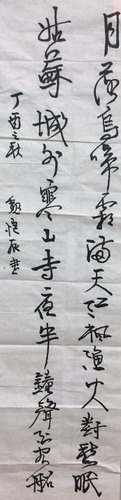 月落烏啼霜滿天江楓漁火對愁眠
姑蘇城外寒山寺夜半鐘聲到客船
丁酉之秋